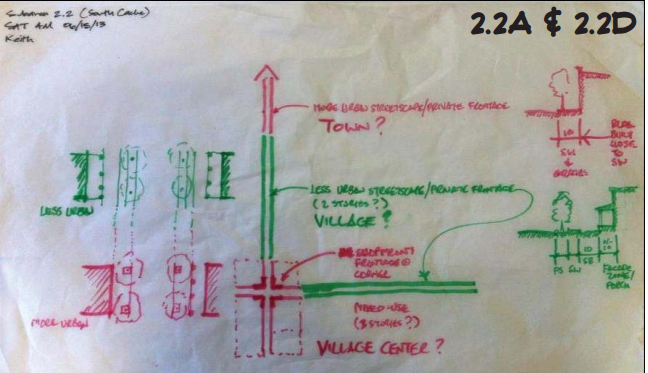 Subarea 2.2 (South Cache)
SAT AM 06/15/13
Keith
2.2A & 2.2D
MORE URBAN STREETSCAPE/PRIVATE FRONTAGE
TOWN?
10
SW
&
GRATES
BLDG
BUILT
CLOSE
TO
SW
LESS URBAN
LESS URBAN STREETSCAPE/PRIVATE FRONTAGE
(2 STORIES?)
VILLAGE?
SHOPFRONT
FRONTAGE @
CORNER
10
PS SW
SB
FACADE
ZONE/
PORCH
MORE URBAN
MIXED-USE
(3 STORIES?)
VILLAGE CENTER?